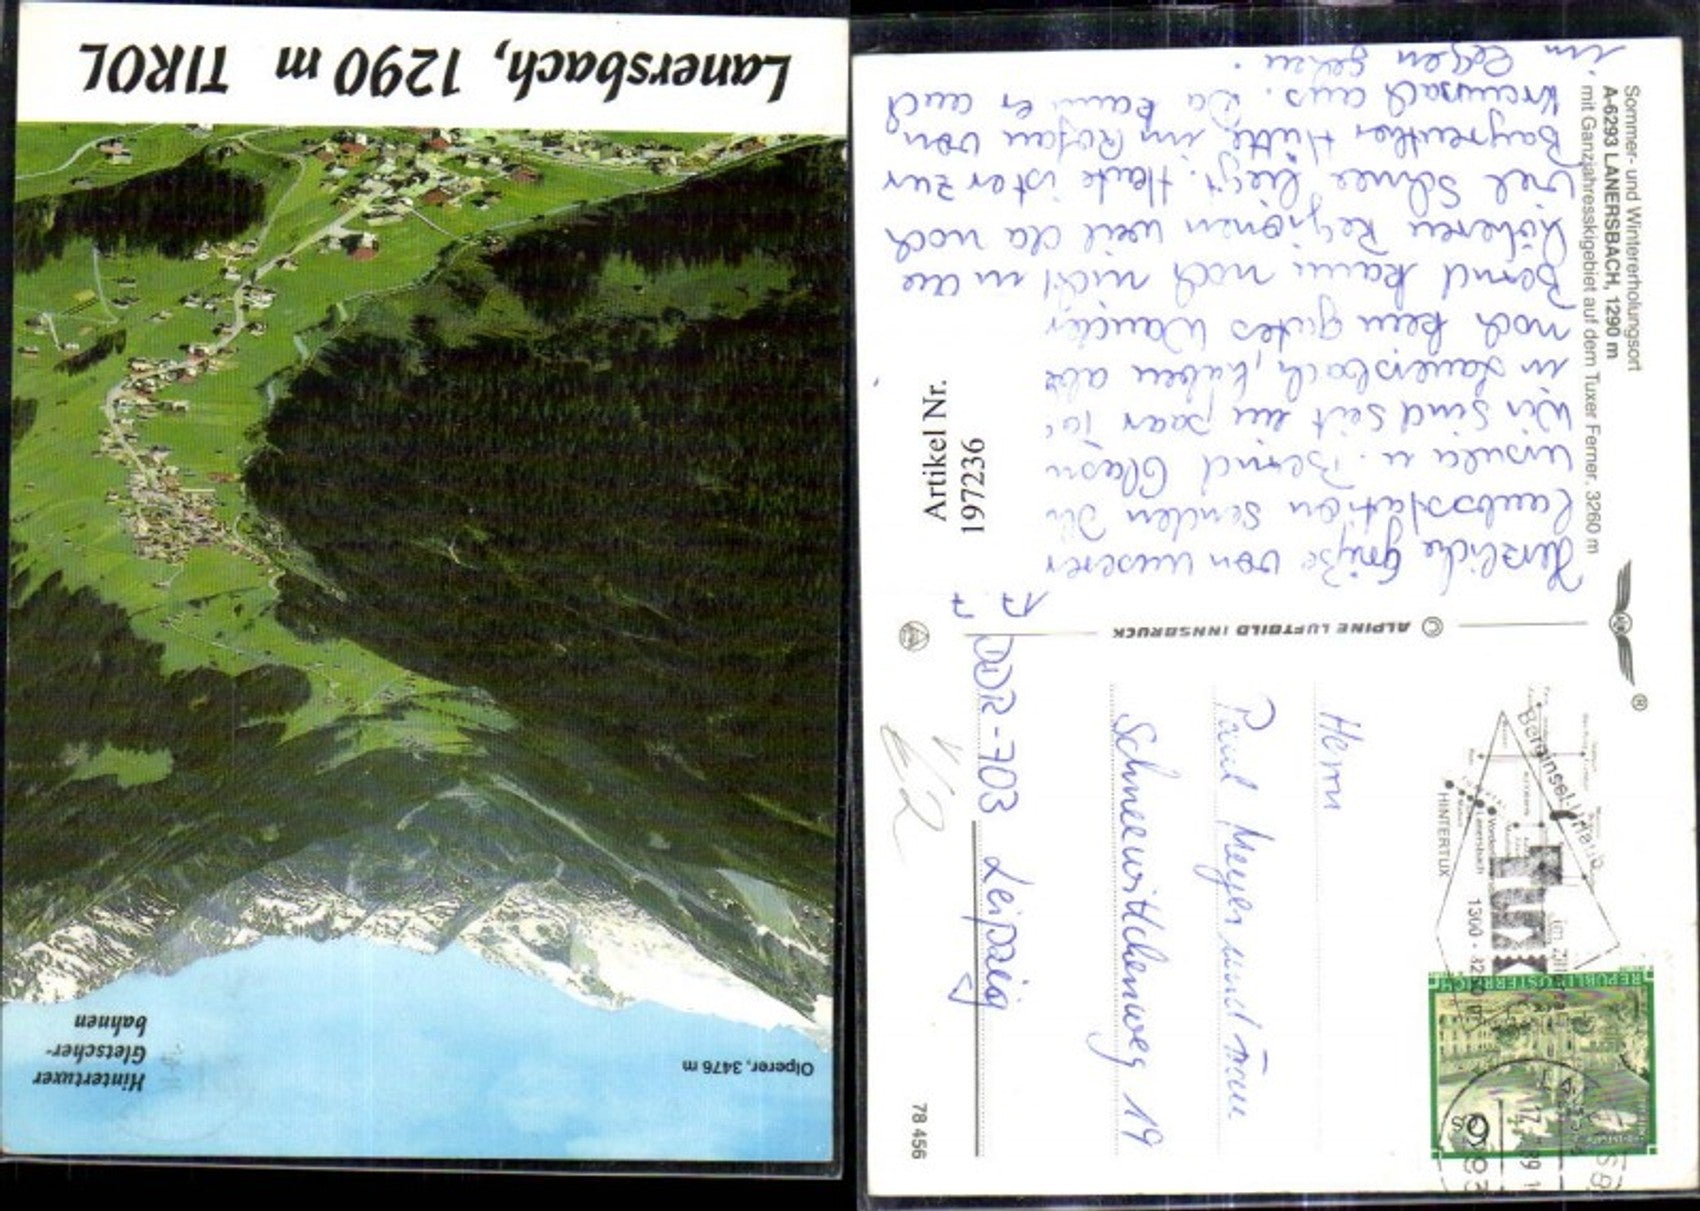 Olperer, 3476 m
Hintertuxer
Gletscher-
bahnen
Lanersbach, 1290 m TIROL
Sommer- und Wintererholungsort
A-6293 LANERSBACH, 1290 m
mit Ganzjahresskigebiet auf dem Tuxer Ferner, 3260 m
17. 7
Herzliche Grüße von unserer
Urlaubsstation senden Dir
Ursula u. Bernd
Wir sind seit ein paar
in Lanersbach, haben aber
noch kein gutes Wander
Bernd kann noch nicht in die
höheren Regionen weil da noch
viel Schnee liegt. Heute ist er zur
Bayreuther Hütte im Rofan von
Kramsach aus. Da kann er auch
im Regen gehen.
Artikel Nr.
197236
© ALPINE LUFTBILD INNSBRUCK
®
Herrn
Paul Meyer und Frau
Schneewittchenweg 19
DDR-703 Leipzig
78 456
HINTERTUX
Lanersbach
1300 - 32
Tux
im Zille
REPUBLIK ÖSTERREICH
S 6
17. 7. 89